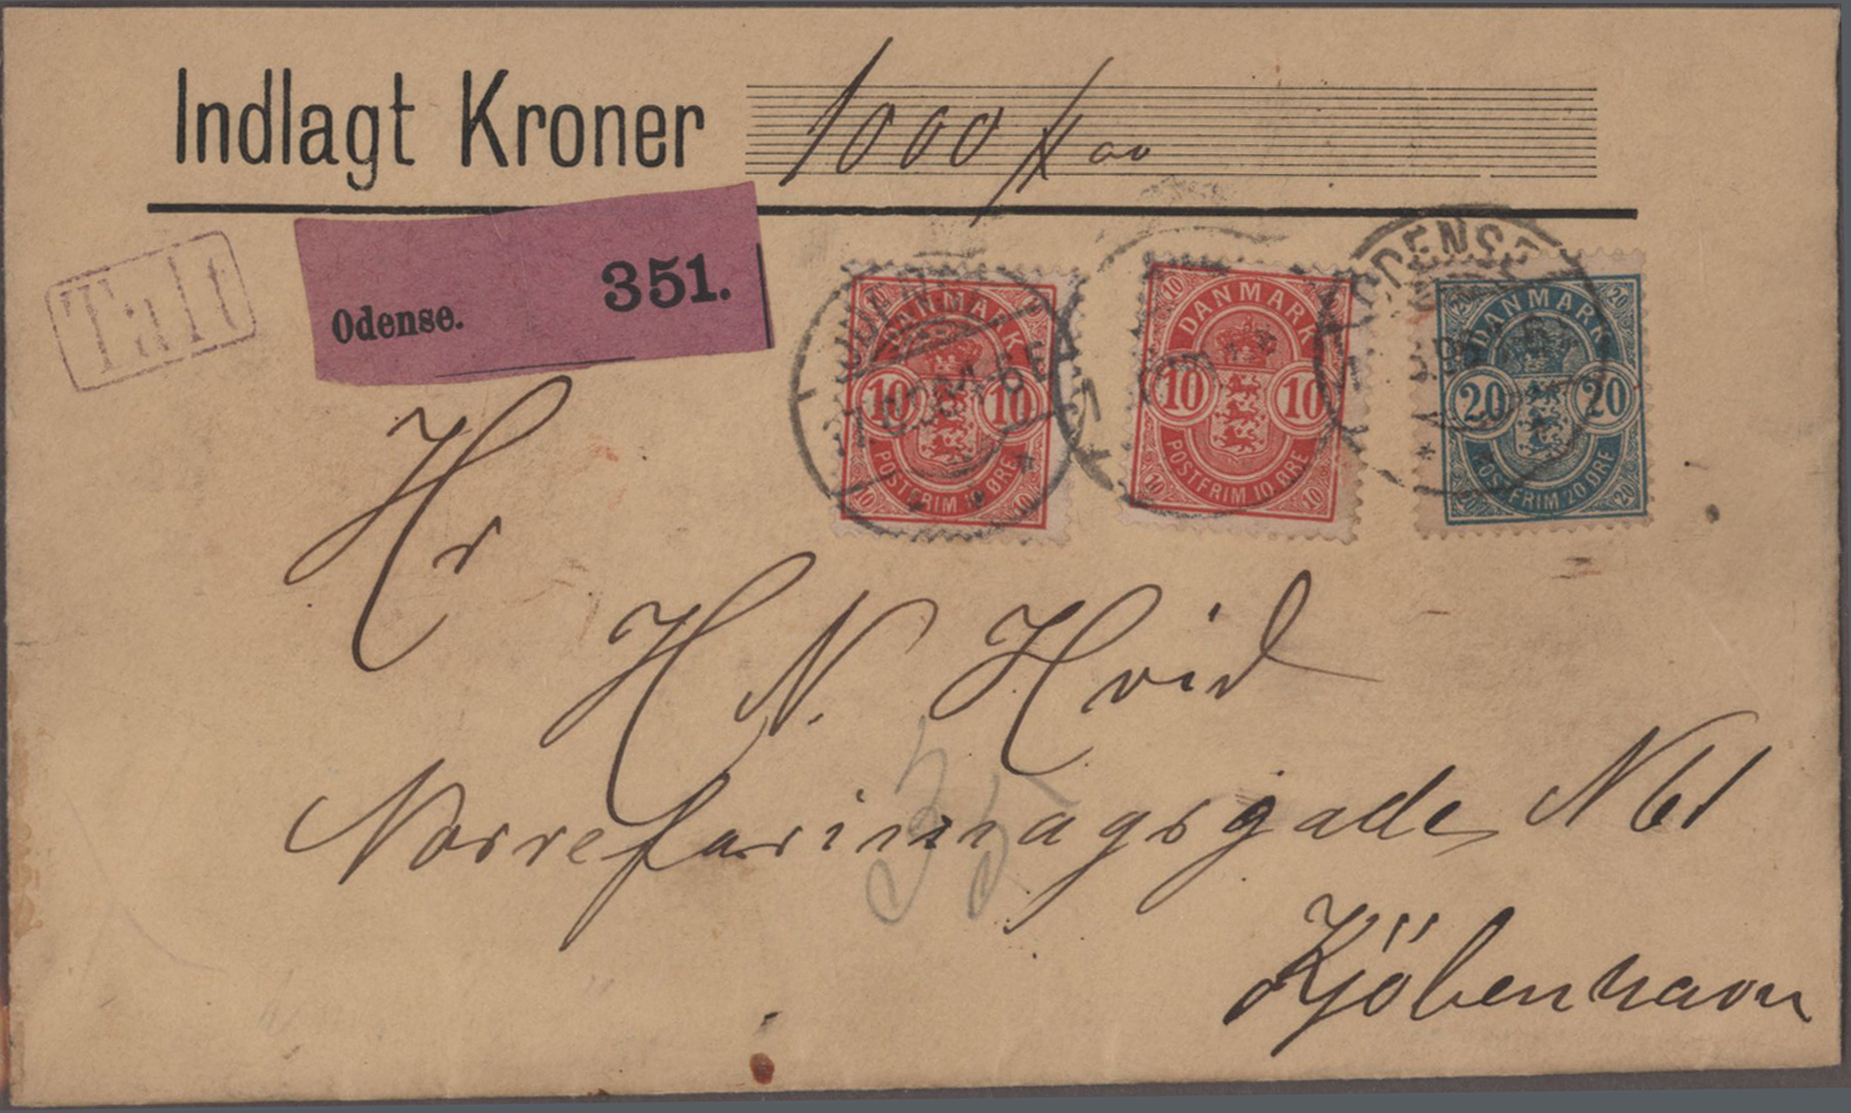 Indlagt Kroner 1000 //oo
Talt
Odense. 351.
DANMARK
10 10
POSTFRIM 10 ØRE
10 10 10
DANMARK
10 10
POSTFRIM 10 ØRE
10 10 10
ODENSE
DANMARK
20 20
POSTFRIM 20 ØRE
20 20 20
Hr
H N. Hvid
Norrefarimagsgade N 61
35
Kjöbenhavn